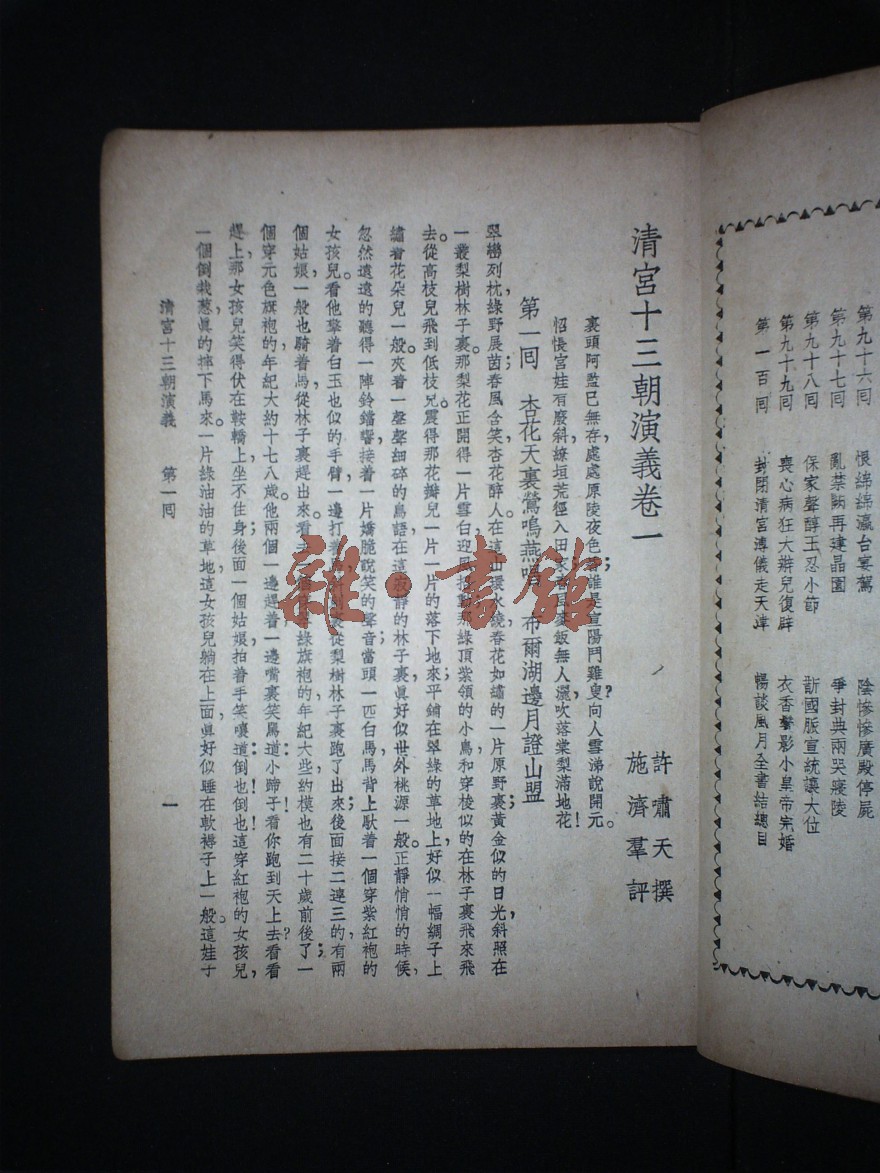 第九十六囘　恨綿綿瀛台宴駕　陰慘慘廣殿停屍
第九十七囘　亂禁闕再建晶園　爭封典兩哭寢陵
第九十八囘　保家聲醇王忍小節　斷國脈宣統讓大位
第九十九囘　喪心病狂大辮兒復辟　衣香鬢影小皇帝完婚
第一百囘　封閉清宮溥儀走天津　暢談風月全書結總目
清宮十三朝演義卷一
許嘯天撰
施濟羣評
裏頭阿監已無存，處處原陵夜色；誰是宣陽門雞叟？向人雪涕說開元。
怊悵宮娃有廢斜，繚垣荒徑入田家；飯無人灑，吹落棠梨滿地花！
第一囘　杏花天裏鶯鳴燕唱　布爾湖邊月證山盟
翠巒列枕，綠野展茵；春風含笑，杏花醉人。在這山環水繞，春花如繡的一片原野裏；黃金似的日光，斜照在
一叢梨樹林子裏，那梨花正開得一片雪白，迎那綠頂紫領的小鳥，和穿梭似的在林子裏飛來飛
去。從高枝兒飛到低枝兒，震得那花瓣兒一片一片的落下地來；平鋪在翠綠的草地上，好似一幅綢子上
繡着花朵兒一般。夾着一聲聲細碎的鳥語，在這寂靜的林子裏，眞好似世外桃源一般。正靜悄悄的時候，
忽然遠遠的聽得一陣鈴鐺響，接着一片嬌脆說笑的聲音；當頭一匹白馬，馬背上馱着一個穿紫紅袍的
女孩兒。看他擎着白玉也似的手臂，一邊打着從梨樹林子裏跑了出來；後面接二連三的，有兩
個姑娘一般也騎着馬，從林子裏趕出來。看去一個穿綠旗袍的，年紀大些，約模也有二十歲前後了；一
個穿元色旗袍的，年紀大約十七八歲。他兩個一邊趕着，一邊嘴裏笑罵道：小蹄子！看你跑到天上去？看看
趕上，那女孩兒笑得伏在鞍轎上，坐不住身；後面一個姑娘拍着手笑嚷道：倒也！倒也！這穿紅袍的女孩兒，
一個倒栽葱，眞的摔下馬來。一片綠油油的草地，這女孩兒躺在上面，眞好似睡在軟褥子上一般。這娃子
清宮十三朝演義　第一囘　一
雜·書館